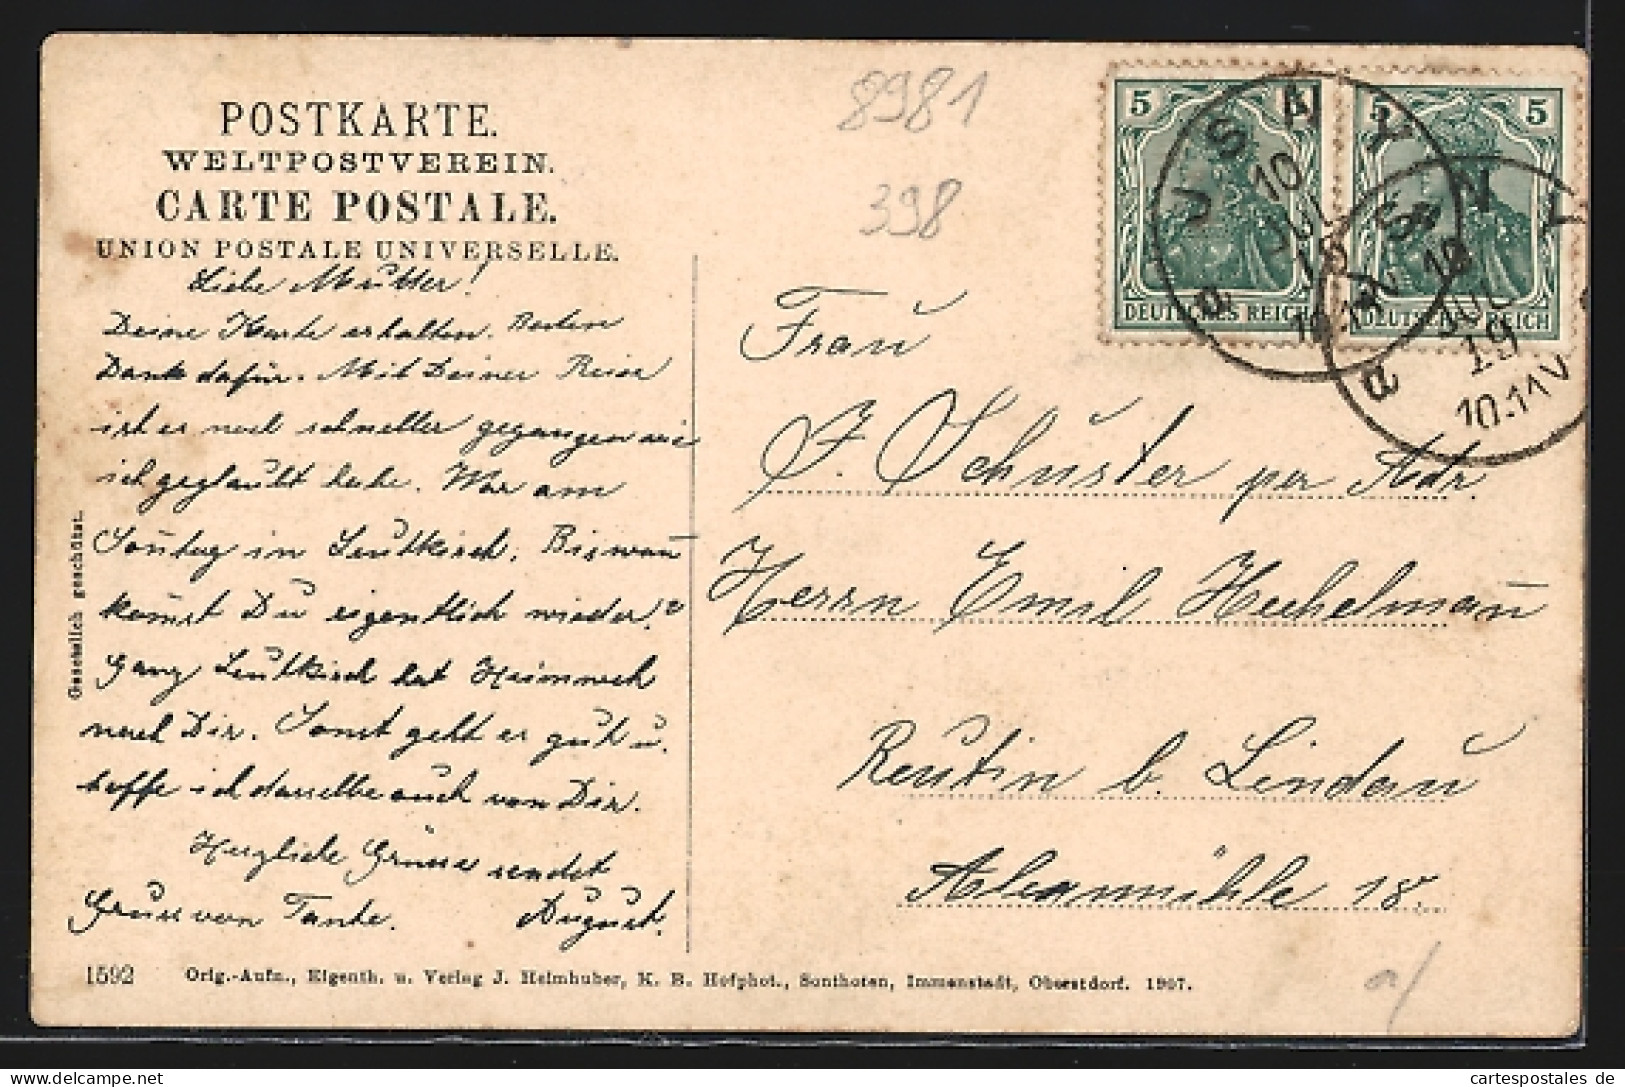 POSTKARTE.
WELTPOSTVEREIN.
CARTE POSTALE.
UNION POSTALE UNIVERSELLE.
8981
398
5
5 5
DEUTSCHES REICH
DEUTSCHES REICH
10
JUL
19
10-11V
Liebe Mutter!
Deine Karte erhalten. Besten
Dank dafür. Mit Deiner Reise
ist es noch schneller gegangen wie
ich geglaubt habe. War am
Sonntag in Leutkirch. Bis wann
kommst Du eigentlich wieder?
Ganz Leutkirch hat Heimweh
nach Dir. Sonst geht es gut u.
hoffe ich dasselbe auch von Dir.
Herzliche Grüsse sendet
Gruss von Tante. August.
Frau
J. Schuster per Adr.
Herrn Emil Hechelmann
Reutin b. Lindau
18.
Gesetzlich geschützt.
1592 Orig.-Aufn., Eigenth. u. Verlag J. Heimhuber, K. B. Hofphot., Sonthofen, Immenstadt, Oberstdorf. 1907.
cartespostales de
www.delcampe.net